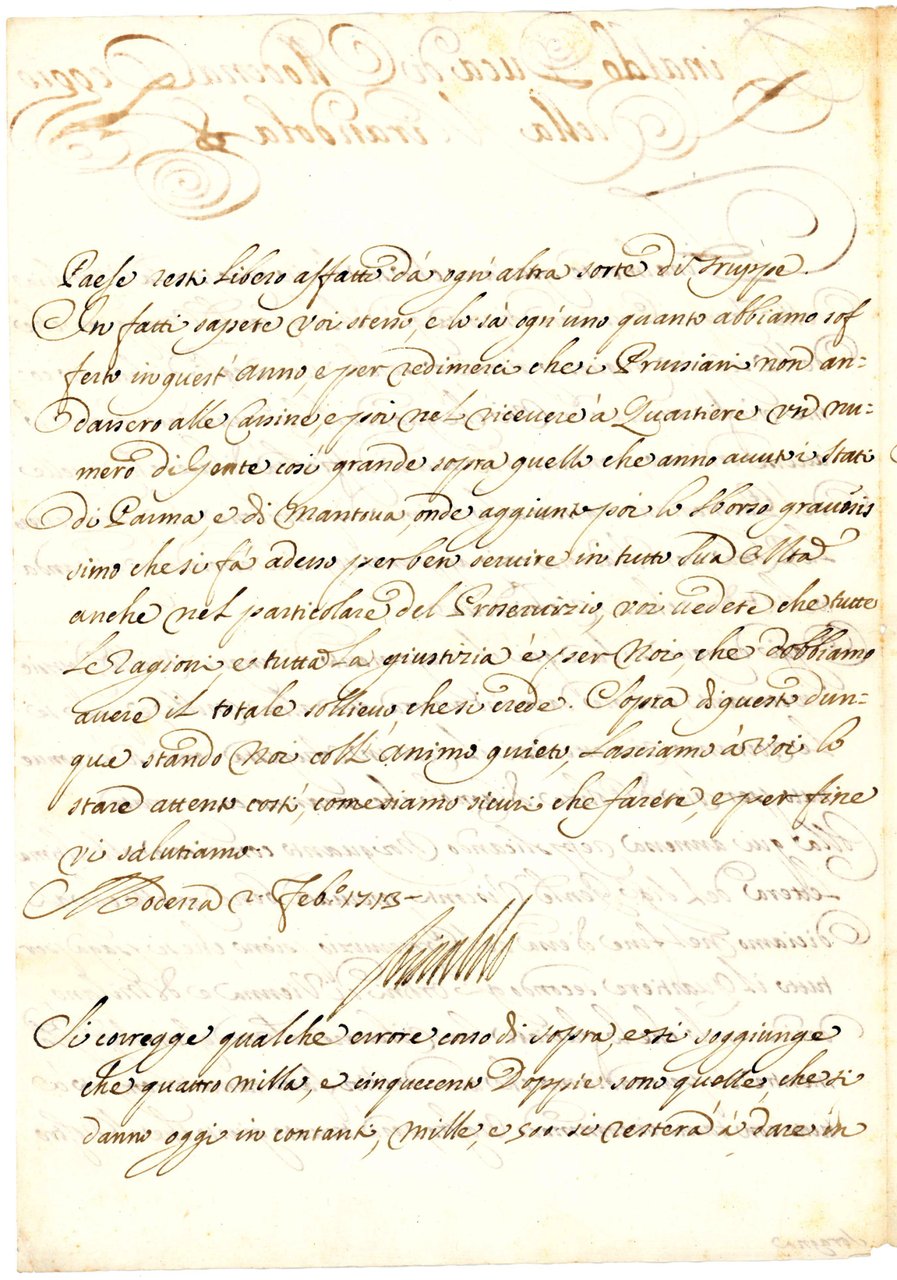 Paese resti libero affatto dà ogn'altra sorte di Truppe.
In fatti sapete voi stesso, e lo sà ogn'uno quanto abbiamo sof
ferto in quest'anno, e per redimerci che i Prussiani non an=
dassero alle Cassine, e poi nel ricevere à Quartiere un nu=
mero di Gente così grande sopra quello che anno avuti i stati
di Parma, e di Mantova, onde aggiunto poi lo sborso gravenis
simo che si fà adesso per ben servire in tutto Sua Mtà
anche nel particolare del Proservizio, voi vedete che tutte
le Ragioni, e tutta la giustizia è per Noi, che dobbiamo
avere il totale sollievo, che si crede. Sopra di questo dun=
que stando Noi coll'animo quieto, lasciamo à voi lo
stare attento costì, come siamo sicuri che farete, e per fine
vi salutiamo.
Modena 2 Feb.º 1713-
Rinaldo
Si corregge qualche errore corso di sopra, e si soggiunge
che quattro milla, e cinquecento Doppie sono quelle, che si
danno oggi in contanti, mille, e 500 si resterà à dare in